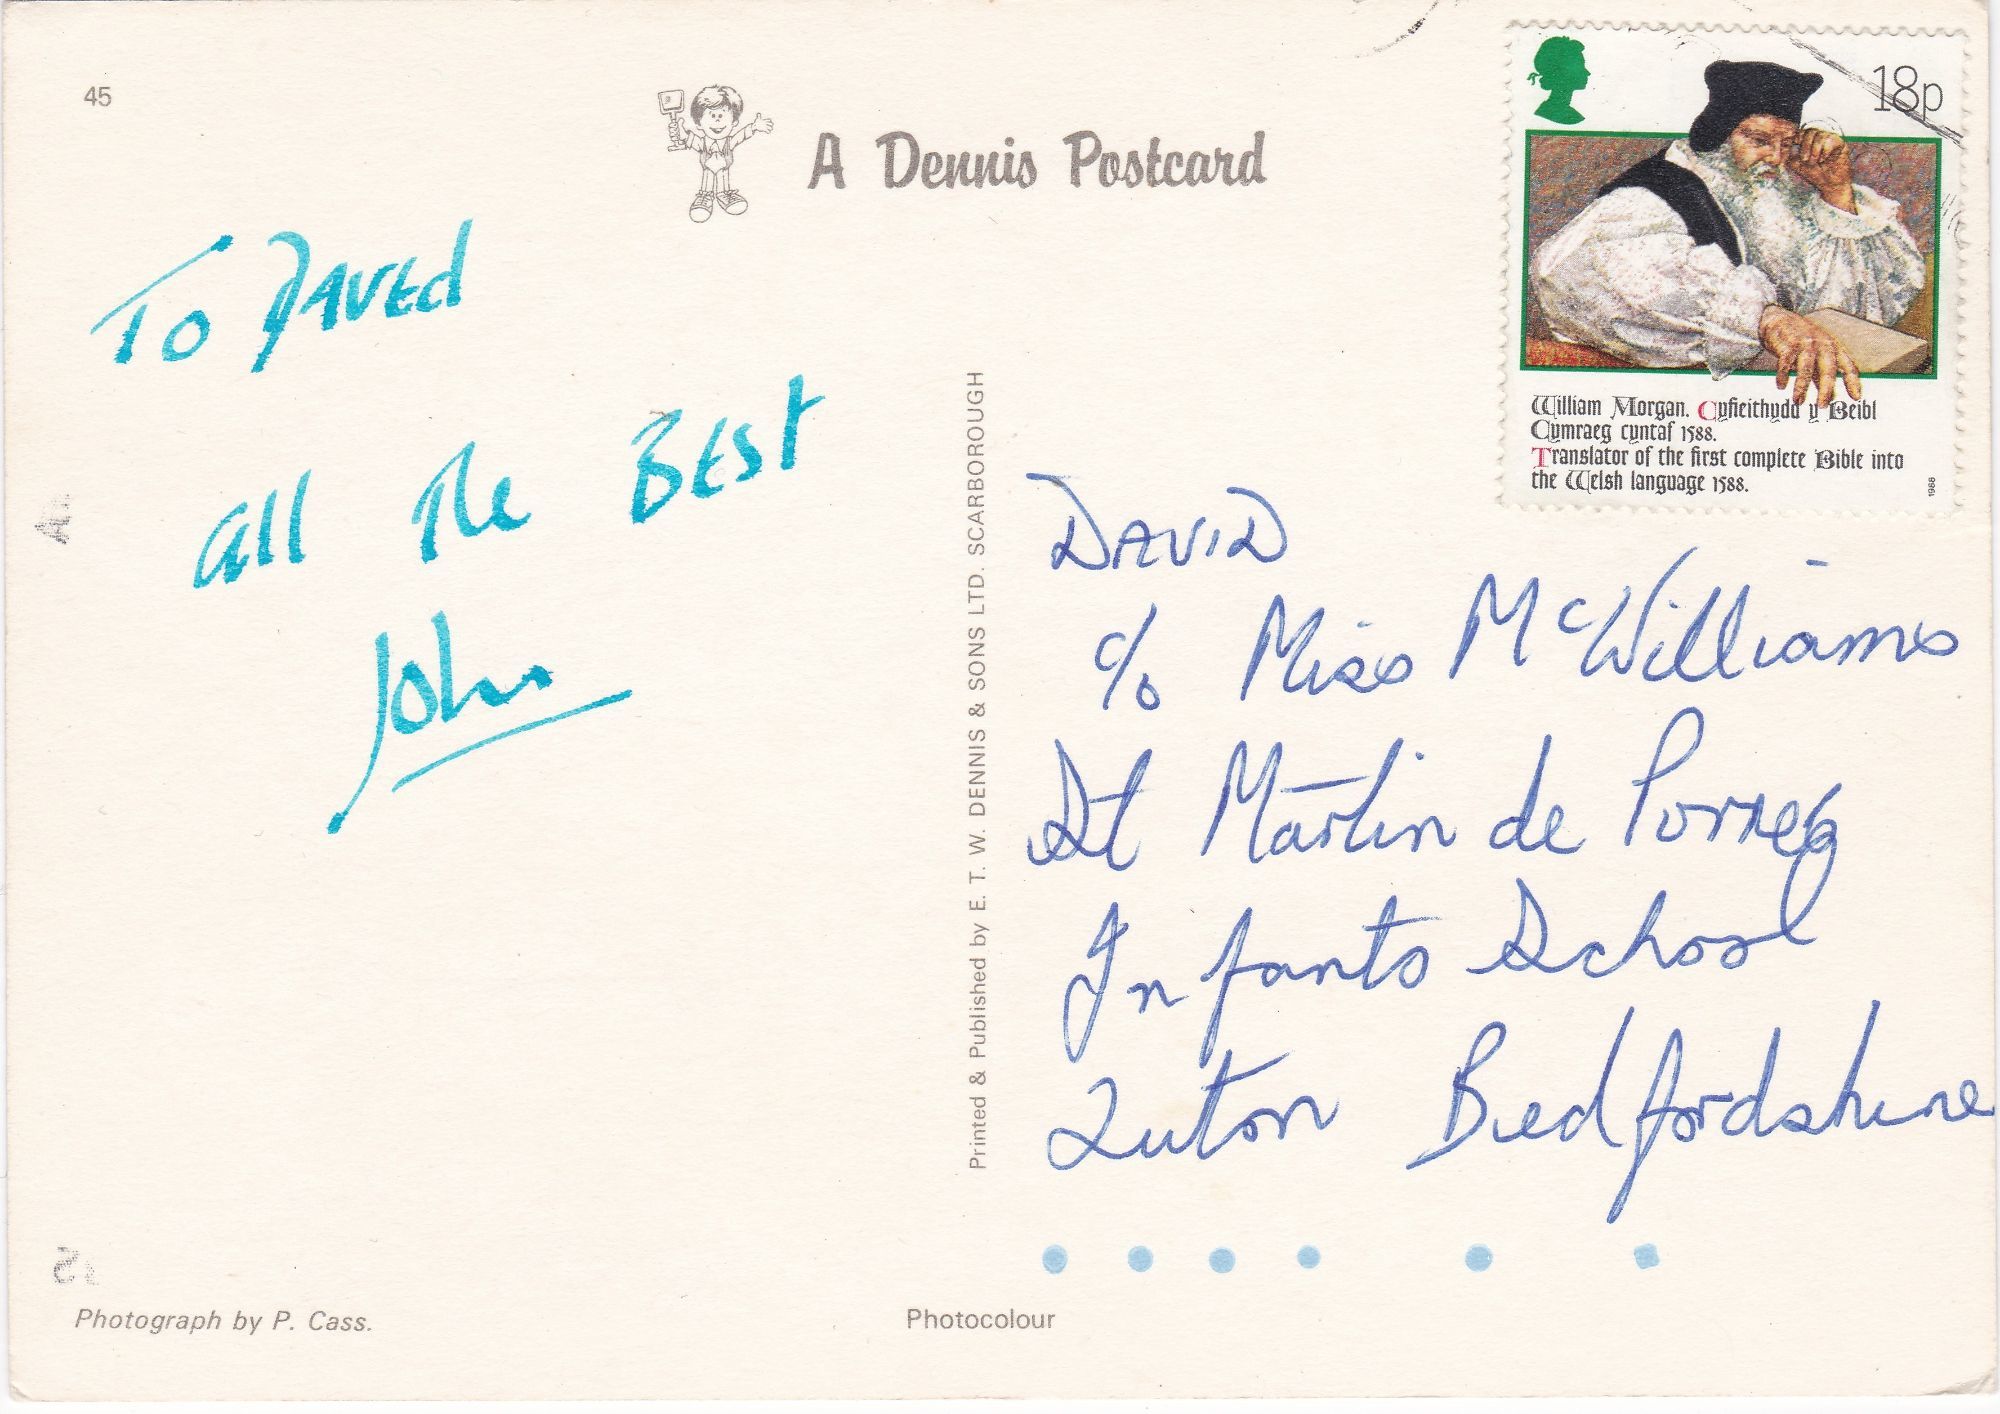 45
A Dennis Postcard
18p
William Morgan. Cyfieithydd y Beibl
Cymraeg cyntaf 1588.
Translator of the first complete Bible into
the Welsh language 1588.
1988
To DAVEd
all The BEST
John
Printed & Published by E. T. W. DENNIS & SONS LTD. SCARBOROUGH
DAVID
c/o Miss McWilliams
St Martin de Porres
Infants School
Luton Bedfordshire
Photograph by P. Cass.
Photocolour